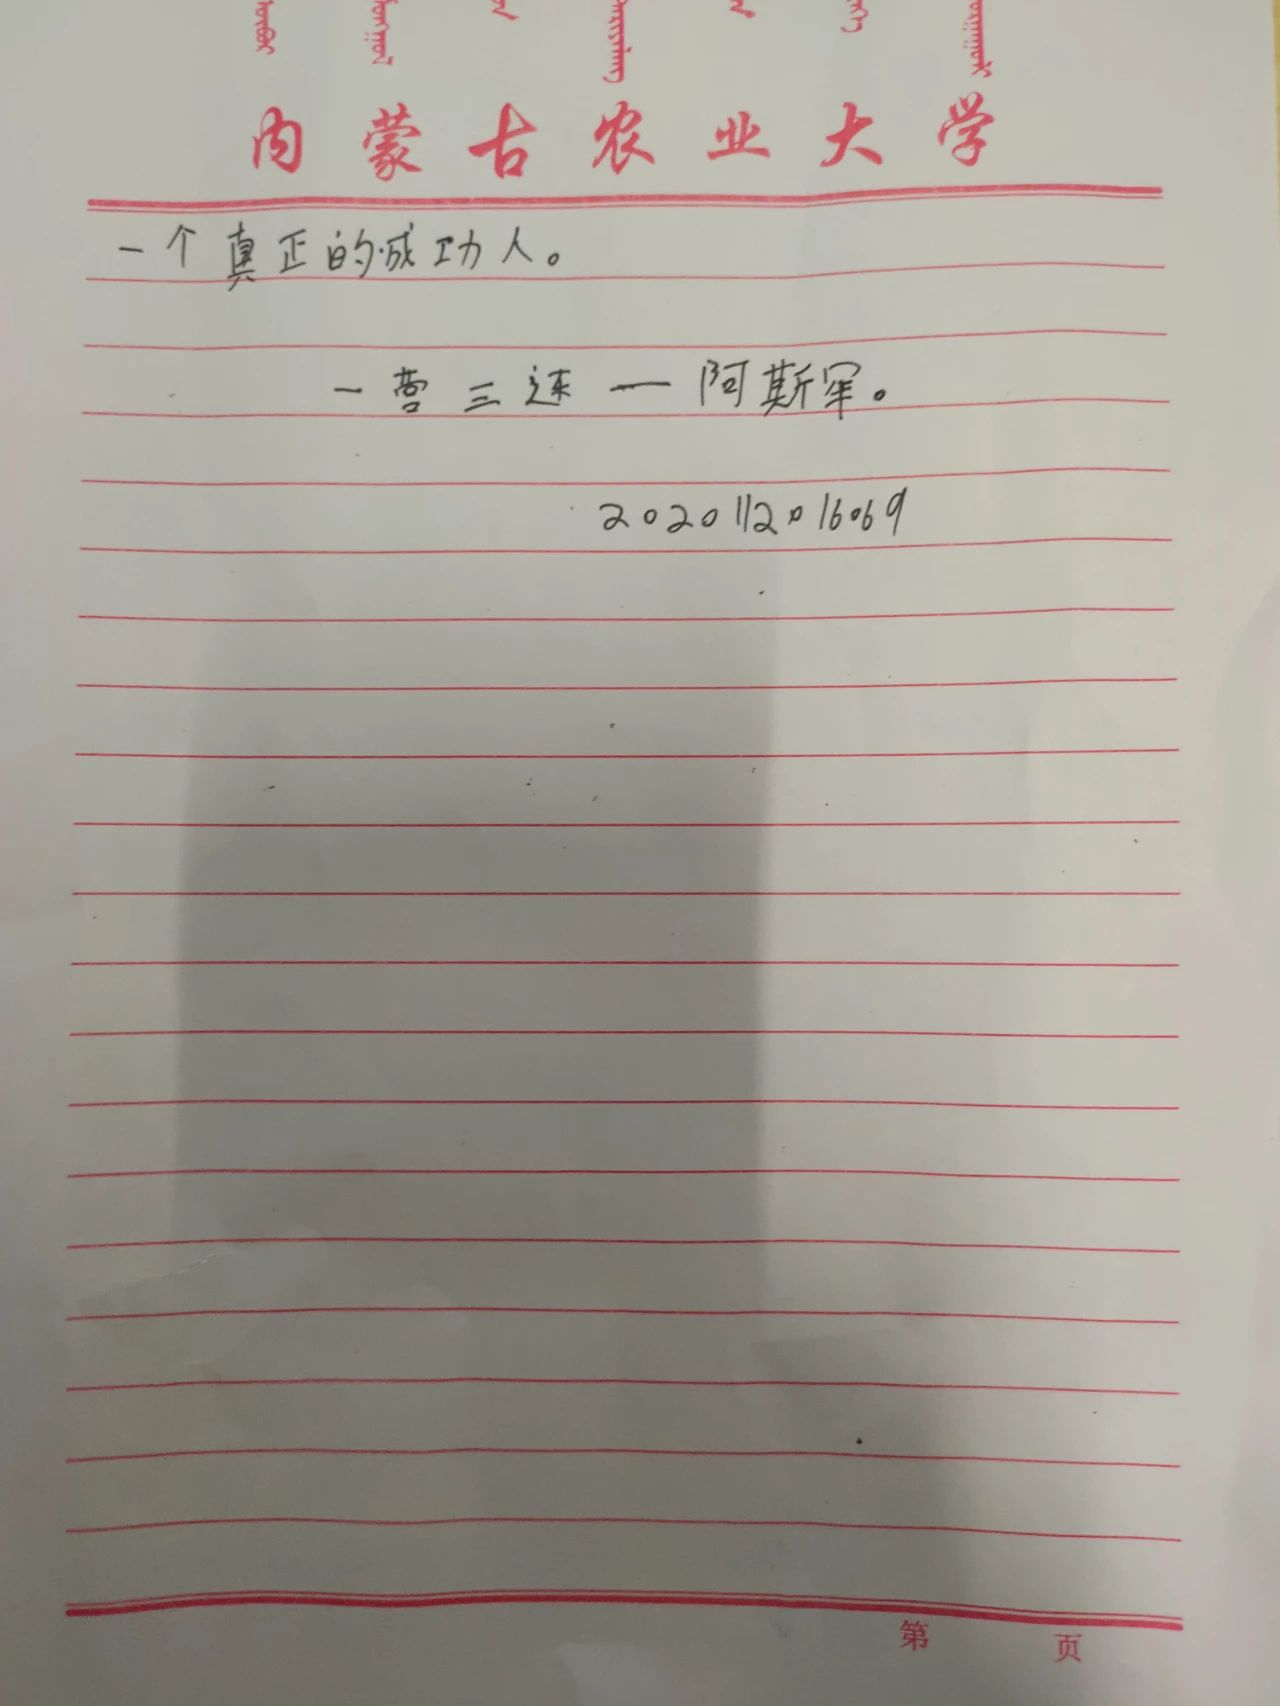 内蒙古农业大学
一个真正的成功人。
一营三连——阿斯罕。
2020112016069
第 页